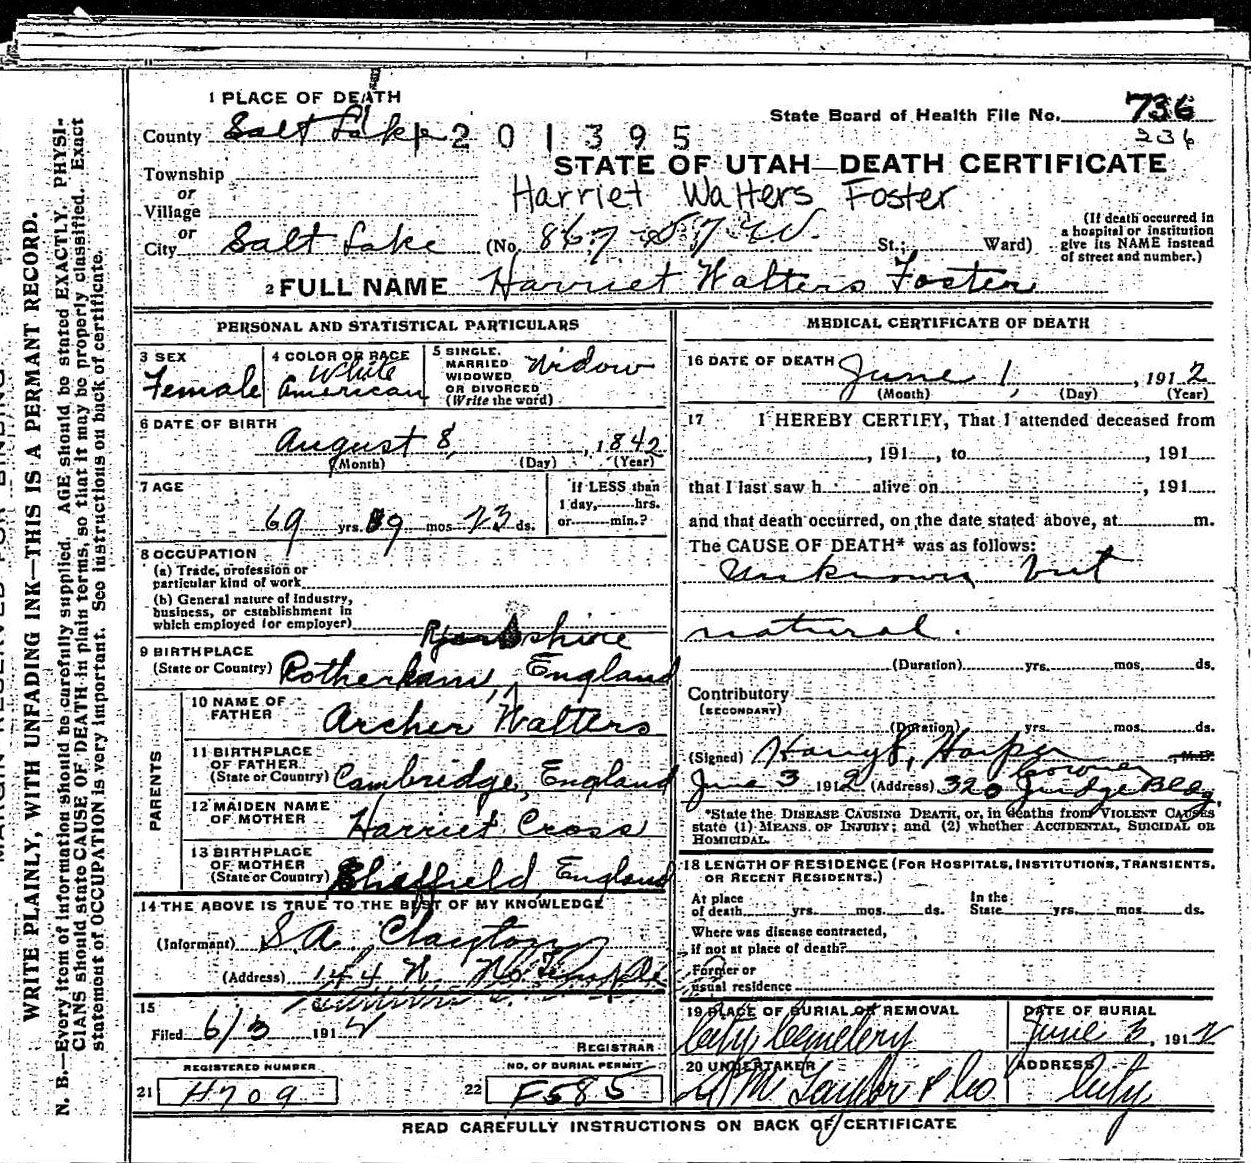 1 PLACE OF DEATH
County Salt Lake
1201395
State Board of Health File No. 736
236
STATE OF UTAH—DEATH CERTIFICATE
Township
or
Village
or
City Salt Lake (No. 867 St.; Ward)
Harriet Walters Foster
(If death occurred in
a hospital or institution
give its NAME instead
of street and number.)
2 FULL NAME Harriet Walters Foster
PERSONAL AND STATISTICAL PARTICULARS
3 SEX
Female
4 COLOR OR RACE
White
American
5 SINGLE,
MARRIED
WIDOWED
OR DIVORCED
(Write the word)
Widow
6 DATE OF BIRTH
August 8, 1842
(Month) (Day) (Year)
7 AGE
69 yrs. 9 mos. 23 ds.
If LESS than
1 day, hrs.
or min.?
8 OCCUPATION
(a) Trade, profession or
particular kind of work
(b) General nature of Industry,
business, or establishment in
which employed (or employer)
9 BIRTHPLACE
(State or Country)
Yorkshire
Rotherham, England
PARENTS
10 NAME OF
FATHER
Archer Walters
11 BIRTHPLACE
OF FATHER
(State or Country) Cambridge, England
12 MAIDEN NAME
OF MOTHER
Harriet Cross
13 BIRTHPLACE
OF MOTHER
(State or Country) Sheffield, England
14 THE ABOVE IS TRUE TO THE BEST OF MY KNOWLEDGE
(Informant) S A Clayton
(Address) 144 W. No Temple
15
Filed 6/3 1912
REGISTRAR
REGISTERED NUMBER
21 H709
NO. OF BURIAL PERMIT
22 F585
MEDICAL CERTIFICATE OF DEATH
16 DATE OF DEATH
June 1, 1912
(Month) (Day) (Year)
17 I HEREBY CERTIFY, That I attended deceased from
, 191 , to , 191
that I last saw h alive on , 191
and that death occurred, on the date stated above, at m.
The CAUSE OF DEATH* was as follows:
Unknown but
natural.
(Duration) yrs. mos. ds.
Contributory
(SECONDARY)
(Duration) yrs. mos. ds.
(Signed) Harry S. Harper M.D.
Coroner
June 3 1912 (Address) 320 Judge Bldg.
*State the DISEASE CAUSING DEATH, or, in deaths from VIOLENT CAUSES
state (1) MEANS OF INJURY; and (2) whether ACCIDENTAL, SUICIDAL OR
HOMICIDAL.
18 LENGTH OF RESIDENCE (FOR HOSPITALS, INSTITUTIONS, TRANSIENTS,
OR RECENT RESIDENTS.)
At place
of death yrs. mos. ds.
In the
State yrs. mos. ds.
Where was disease contracted,
if not at place of death?
Former or
usual residence
19 PLACE OF BURIAL OR REMOVAL
City Cemetery
DATE OF BURIAL
June 3, 1912
20 UNDERTAKER
S M Taylor & Co
ADDRESS
City
READ CAREFULLY INSTRUCTIONS ON BACK OF CERTIFICATE
MARGIN RESERVED FOR BINDING
WRITE PLAINLY, WITH UNFADING INK—THIS IS A PERMANT RECORD.
N. B.—Every item of information should be carefully supplied. AGE should be stated EXACTLY. PHYSI-
CIANS should state CAUSE OF DEATH in plain terms, so that it may be properly classified. Exact
statement of OCCUPATION is very important. See instructions on back of certificate.